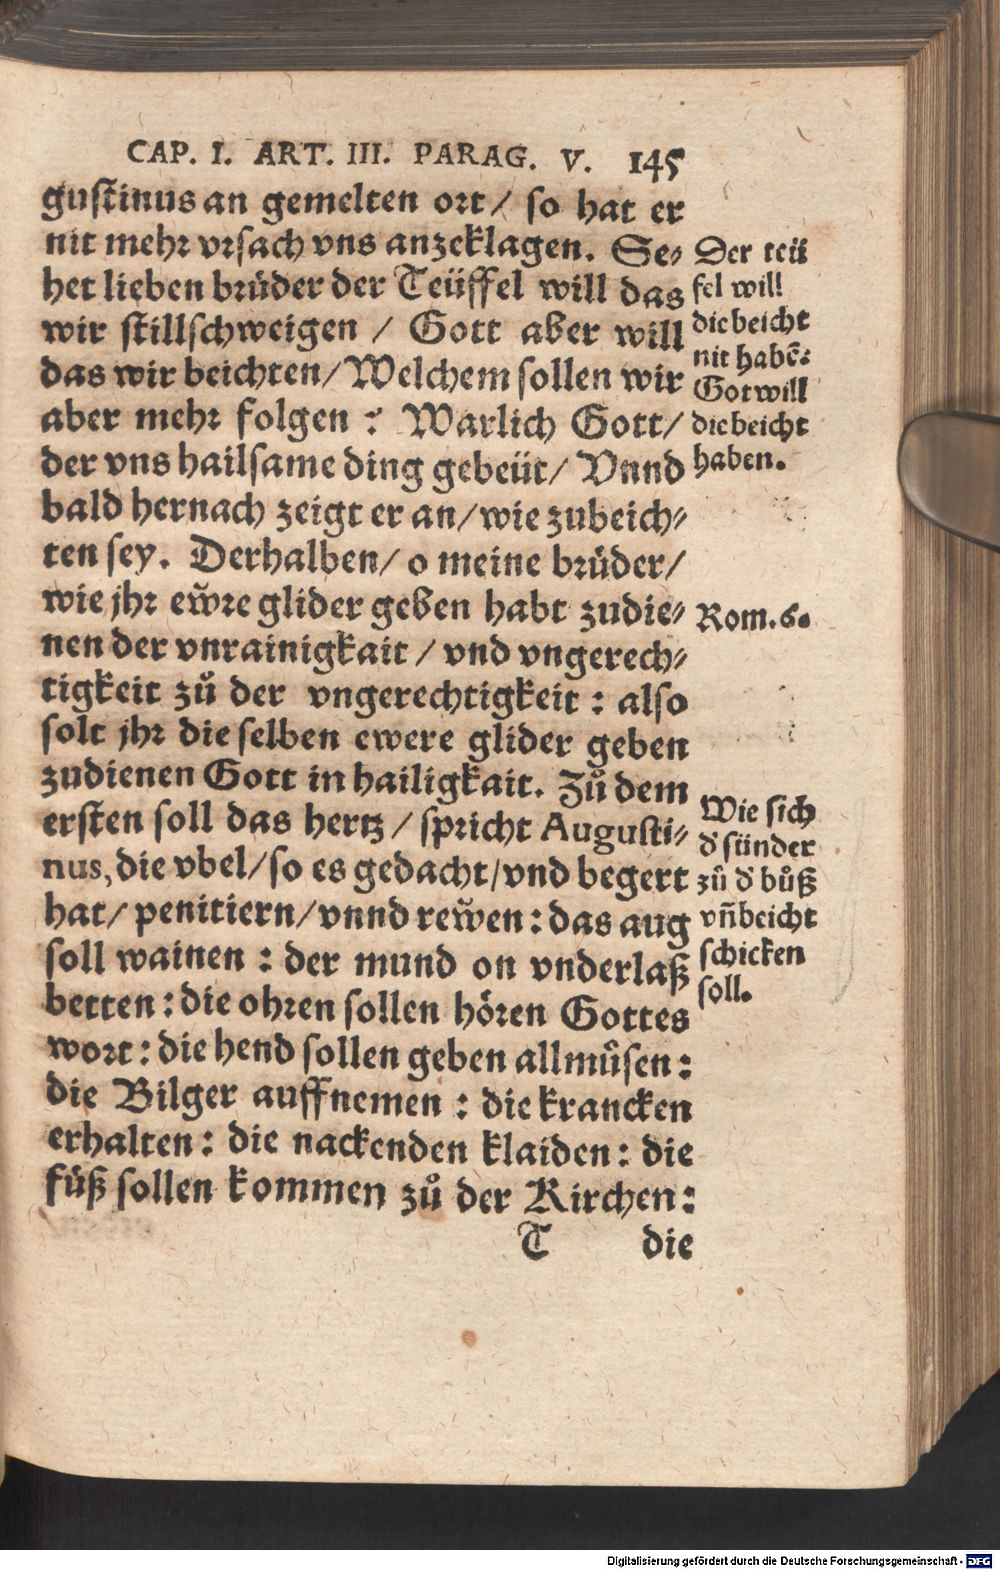 CAP. I. ART. III. PARAG. V. 145
gustinus an gemelten ort / so hat er
nit mehr vrsach vns anzeklagen. Se-
het lieben brüder der Teüffel will das
wir stillschweigen / Gott aber will
das wir beichten / Welchem sollen wir
aber mehr folgen ? Warlich Gott /
der vns hailsame ding gebeüt / Vnnd
bald hernach zeigt er an / wie zubeich-
ten sey. Derhalben / o meine brüder /
wie jhr ewͤre glider geben habt zudie-
nen der vnrainigkait / vnd vngerech-
tigkeit zuͦ der vngerechtigkeit : also
solt jhr die selben ewere glider geben
zudienen Gott in hailigkait. Zuͦ dem
ersten soll das hertz / spricht Augusti-
nus, die vbel / so es gedacht / vnd begert
hat / penitiern / vnnd rewͤen : das aug
soll wainen : der mund on vnderlaß
betten : die ohren sollen hören Gottes
wort : die hend sollen geben allmuͦsen :
die Bilger auffnemen : die krancken
erhalten : die nackenden klaiden : die
füß sollen kommen zuͦ der Kirchen :
T die
Der teü
fel will
die beicht
nit habē:
Got will
die beicht
haben.
Rom. 6.
Wie sich
d' sünder
zuͦ d' buͦß
vñ beicht
schicken
soll.
Digitalisierung gefördert durch die Deutsche Forschungsgemeinschaft - DFG